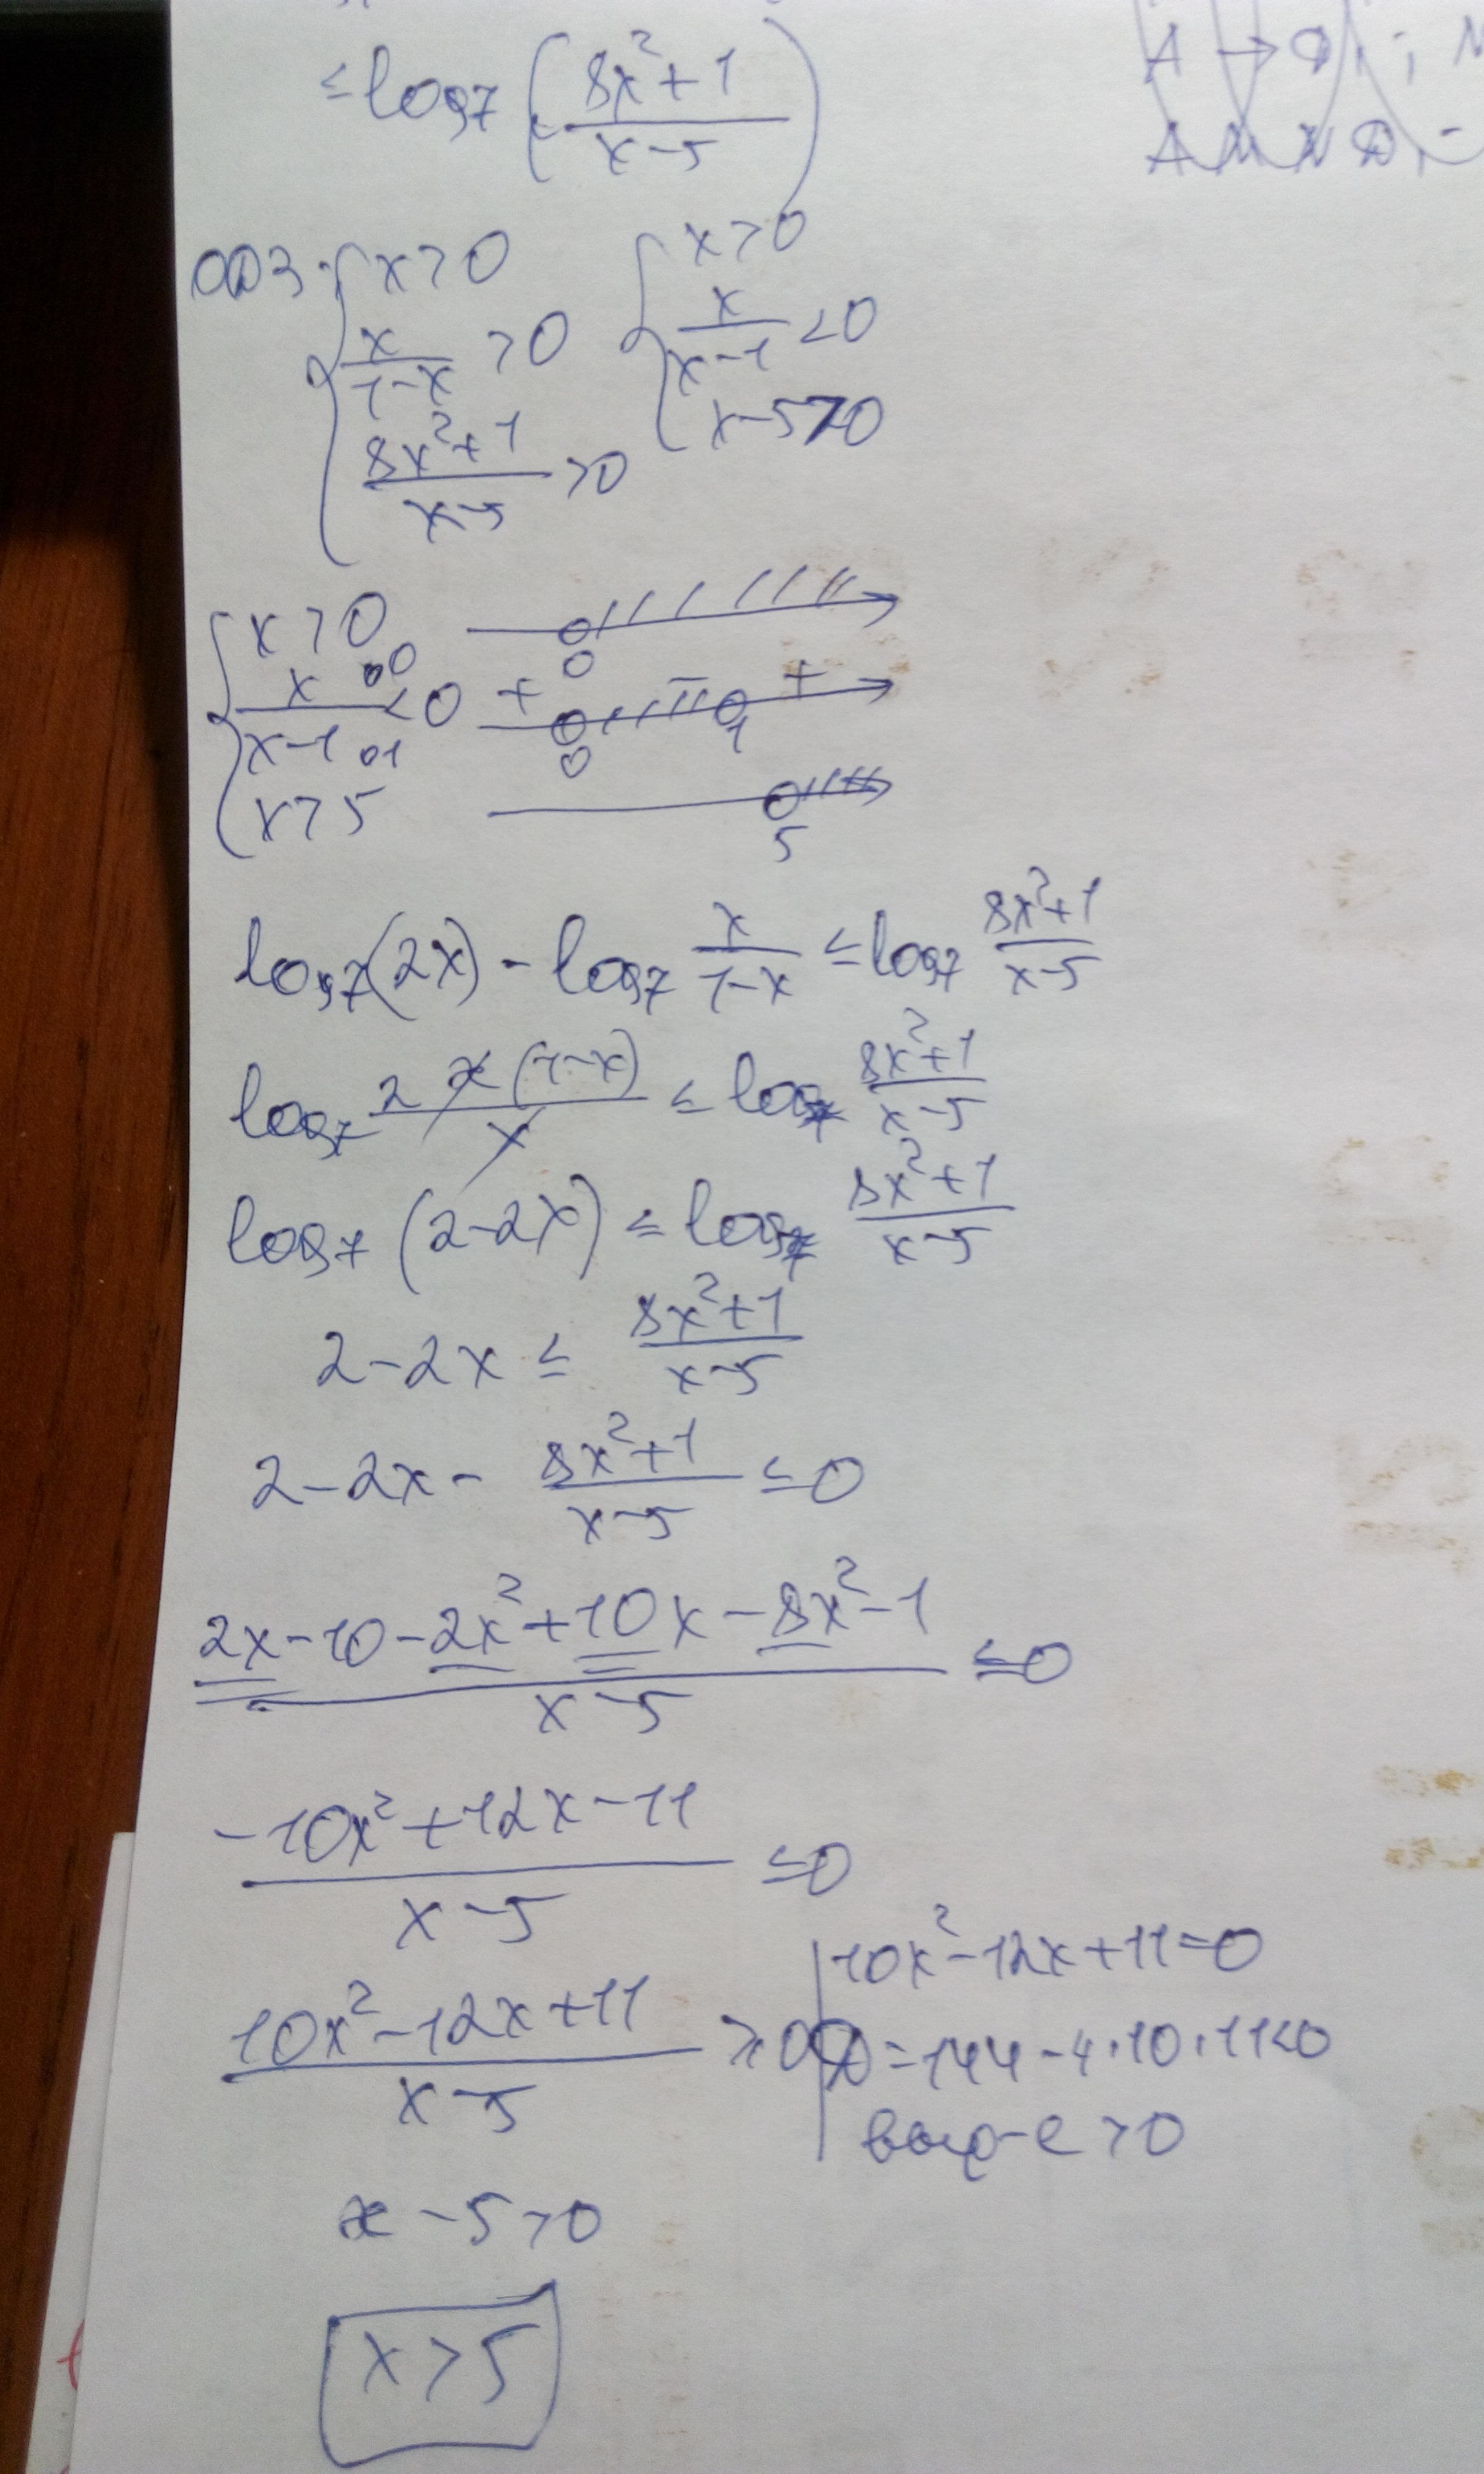 ≤ log₇ (8x²+1)/(x-5)
A → D, ; N
A M N D, -
ОДЗ: { x>0 { x>0
x/(1-x) >0 x/(x-1) <0
(8x²+1)/(x-5) >0 x-5>0
{ x>0 0
x/(x-1) <0 + 0 - 1 +
x>5 5
log₇(2x) - log₇ x/(1-x) ≤ log₇ (8x²+1)/(x-5)
log₇ 2x(1-x)/x ≤ log₇ (8x²+1)/(x-5)
log₇ (2-2x) ≤ log₇ (8x²+1)/(x-5)
2-2x ≤ (8x²+1)/(x-5)
2-2x- (8x²+1)/(x-5) ≤0
(2x-10-2x²+10x-8x²-1)/(x-5) ≤0
(-10x²+12x-11)/(x-5) ≤0
(10x²-12x+11)/(x-5) ≥0
10x²-12x+11=0
D=144-4·10·11<0
выр-е >0
x-5>0
x>5